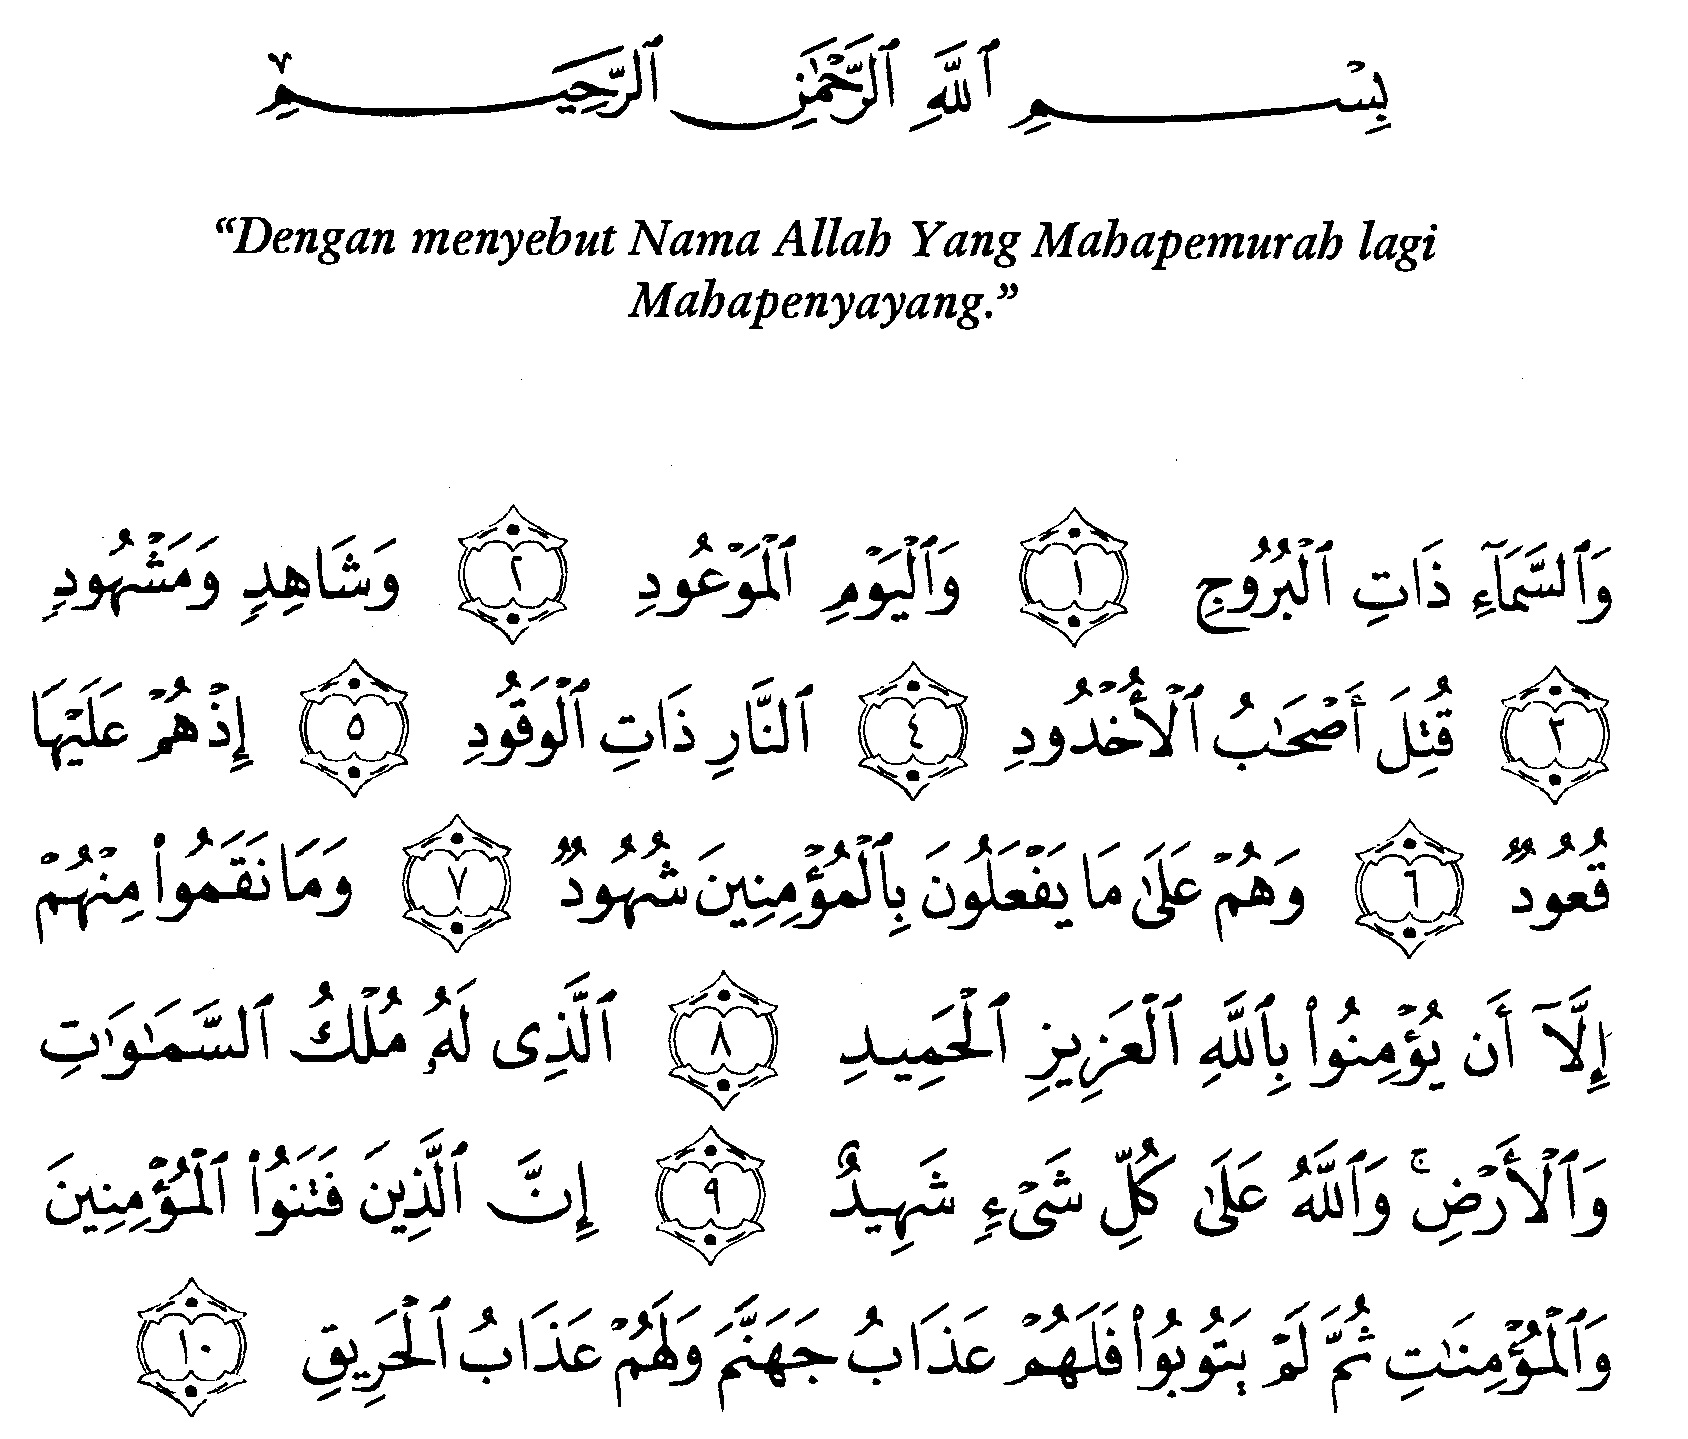 بِسْمِ ٱللَّهِ ٱلرَّحْمَٰنِ ٱلرَّحِيمِ
“Dengan menyebut Nama Allah Yang Mahapemurah lagi
Mahapenyayang.”
وَٱلسَّمَآءِ ذَاتِ ٱلْبُرُوجِ ١ وَٱلْيَوْمِ ٱلْمَوْعُودِ ٢ وَشَاهِدٍ وَمَشْهُودٍ
٣ قُتِلَ أَصْحَٰبُ ٱلْأُخْدُودِ ٤ ٱلنَّارِ ذَاتِ ٱلْوَقُودِ ٥ إِذْ هُمْ عَلَيْهَا
قُعُودٌ ٦ وَهُمْ عَلَىٰ مَا يَفْعَلُونَ بِٱلْمُؤْمِنِينَ شُهُودٌ ٧ وَمَا نَقَمُوا۟ مِنْهُمْ
إِلَّآ أَن يُؤْمِنُوا۟ بِٱللَّهِ ٱلْعَزِيزِ ٱلْحَمِيدِ ٨ ٱلَّذِى لَهُۥ مُلْكُ ٱلسَّمَٰوَٰتِ
وَٱلْأَرْضِ ۚ وَٱللَّهُ عَلَىٰ كُلِّ شَىْءٍ شَهِيدٌ ٩ إِنَّ ٱلَّذِينَ فَتَنُوا۟ ٱلْمُؤْمِنِينَ
وَٱلْمُؤْمِنَٰتِ ثُمَّ لَمْ يَتُوبُوا۟ فَلَهُمْ عَذَابُ جَهَنَّمَ وَلَهُمْ عَذَابُ ٱلْحَرِيقِ ١٠